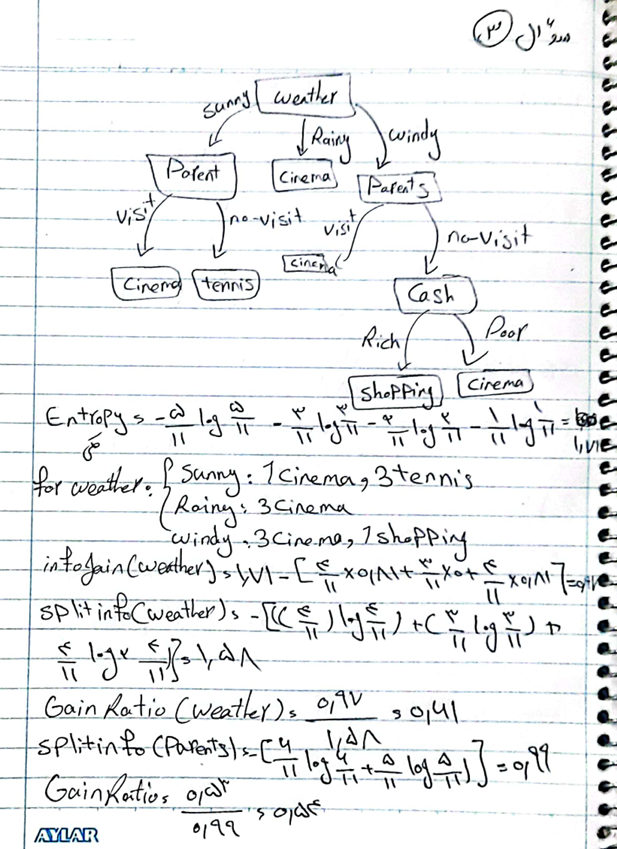 سوال ۳
weather
sunny Rainy windy
Parent Cinema Parents
visit no-visit visit no-visit
Cinema tennis Cinema Cash
Rich Poor
shopping Cinema
Entropy = -۵/۱۱ log ۵/۱۱ - ۳/۱۱ log ۳/۱۱ - ۲/۱۱ log ۲/۱۱ - ۱/۱۱ log ۱/۱۱ = ۱,۷۱
for weather: { Sunny: 1 Cinema, 3 tennis
Rainy: 3 Cinema
windy: 3 Cinema, 1 shopping
infoGain(weather) = ۱,۷۱ - [۴/۱۱ × ۰,۸۱ + ۳/۱۱ × ۰ + ۴/۱۱ × ۰,۸۱] =
split info(weather) = -[(۴/۱۱) log ۴/۱۱) + (۳/۱۱ log ۳/۱۱) +
۴/۱۱ log × ۴/۱۱)] = ۱,۵۸
Gain Ratio (weather) = ۰,۹۷/۱,۵۸ = ۰,۶۱
split info (Parents) = -[۶/۱۱ log ۶/۱۱ + ۵/۱۱ log ۵/۱۱)] = ۰,۹۹
Gain Ratio = ۰,۵۳/۰,۹۹ = ۰,۵۴
AYLAR